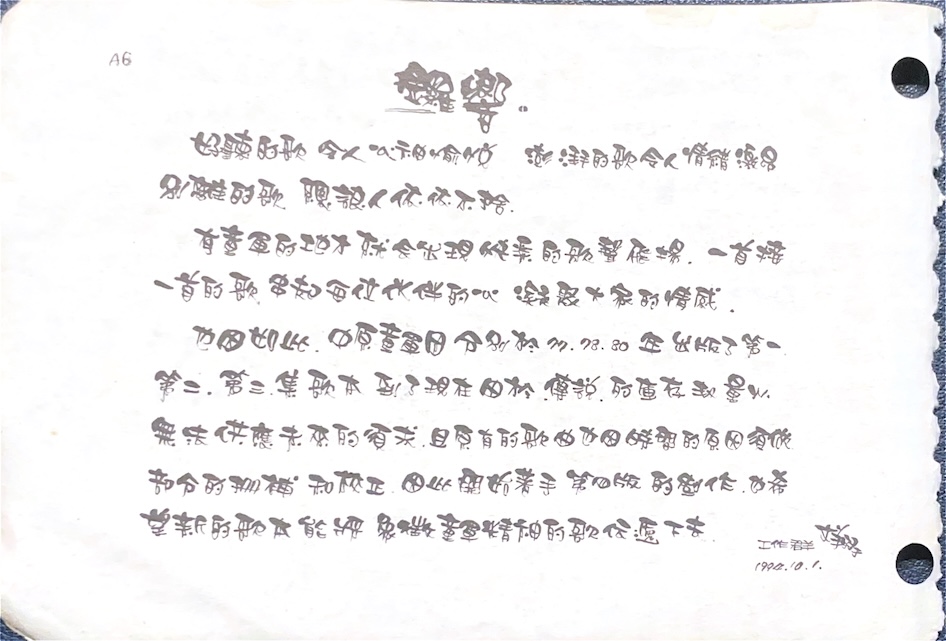 A6
鑼響。
好聽的歌 令人心神愉悅 澎湃的歌令人情緒激昂
別離的歌 願讓人依依不捨.
有童軍的地方 就會出現優美的歌聲飛揚. 一首接
一首的歌 串起每位伙伴的心 凝聚大家的情感.
也因如此. 中原童軍團分別於 77. 78. 80 年出版了第一.
第二. 第三. 集歌本 到了現在 由於 傳說 的庫存數量以
無法供應未來的須求. 且原有的歌曲也因時間的原因須做
部分的刪補 和校正. 因此開始著手 第四版 的製作. 也希
望新的歌本能把 象徵童軍精神的歌 傳遞下去.
工作群
1994.10.1.